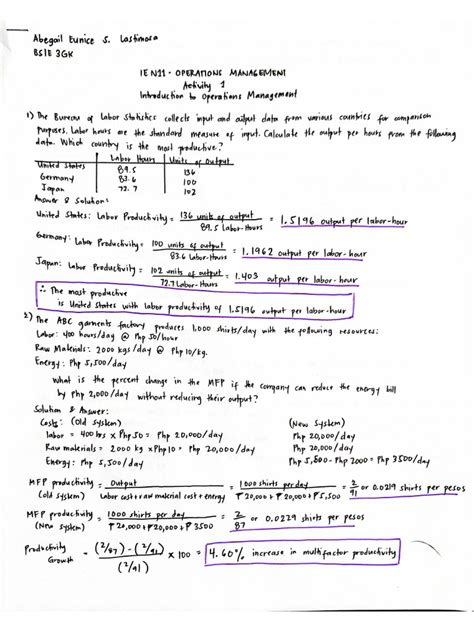 Abegail Eunice S. Lastimosa
BSIE 3GK
IEN21 - OPERATIONS MANAGEMENT
Activity 1
Introduction to Operations Management
1) The Bureau of Labor Statistics collects input and output data from various countries for comparison
purposes. Labor hours are the standard measure of input. Calculate the output per hours from the following
data. Which country is the most productive?
Labor Hours Units of Output
United States 89.5 136
Germany 83.6 100
Japan 72.7 102
Answer & Solution:
United States: Labor Productivity = 136 units of output / 89.5 Labor-Hours = 1.5196 output per labor-hour
Germany: Labor Productivity = 100 units of output / 83.6 Labor-Hours = 1.1962 output per labor-hour
Japan: Labor Productivity = 102 units of output / 72.7 Labor-Hours = 1.403 output per labor-hour
∴ The most productive
is United States with labor productivity of 1.5196 output per labor-hour
2) The ABC garments factory produces 1,000 shirts/day with the following resources:
Labor: 400 hours/day @ Php 50/hour
Raw Materials: 2000 kgs/day @ Php 10/kg.
Energy: Php 5,500/day
What is the percent change in the MFP if the company can reduce the energy bill
by Php 2,000/day without reducing their output?
Solution & Answer:
Costs: (Old System) (New System)
labor = 400 hrs x Php 50 = Php 20,000/day Php 20,000/day
Raw materials = 2000 kg x Php 10 = Php 20,000/day Php 20,000/day
Energy: Php 5,500/day Php 5,500 - Php 2000 = Php 3500/day
MFP productivity (Old System) = Output / Labor cost + raw material cost + energy = 1000 shirts per day / ₱20,000 + ₱20,000 + ₱5,500 = 2/91 or 0.0219 shirts per pesos
MFP productivity (New System) = 1000 shirts per day / ₱20,000 + ₱20,000 + ₱3500 = 2/87 or 0.0229 shirts per pesos
Productivity Growth = (2/87) - (2/91) / (2/91) x 100 = 4.60% increase in multifactor productivity